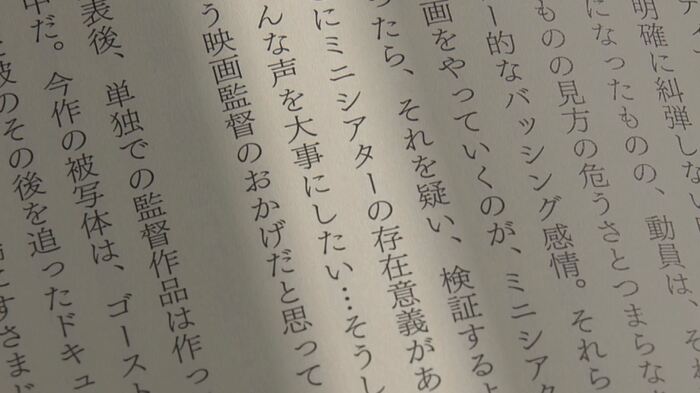 明確に糾弾しない
になったものの、動員は、それ
ものの見方の危うさとつまらな
ー的なバッシング感情。それら
画をやっていくのが、ミニシア
ったら、それを疑い、検証する
にミニシアターの存在意義があ
んな声を大事にしたい…そうし
う映画監督のおかげだと思って
表後、単独での監督作品は作っ
中だ。今作の被写体は、ゴースト
彼のその後を追ったドキュ